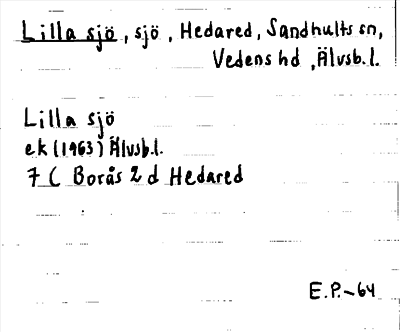 Lilla sjö, sjö, Hedared, Sandhults sn,
Vedens hd, Älvsb.l.
Lilla sjö
ek (1963) Älvsb.l.
7 C Borås 2 d Hedared
E.P.-64